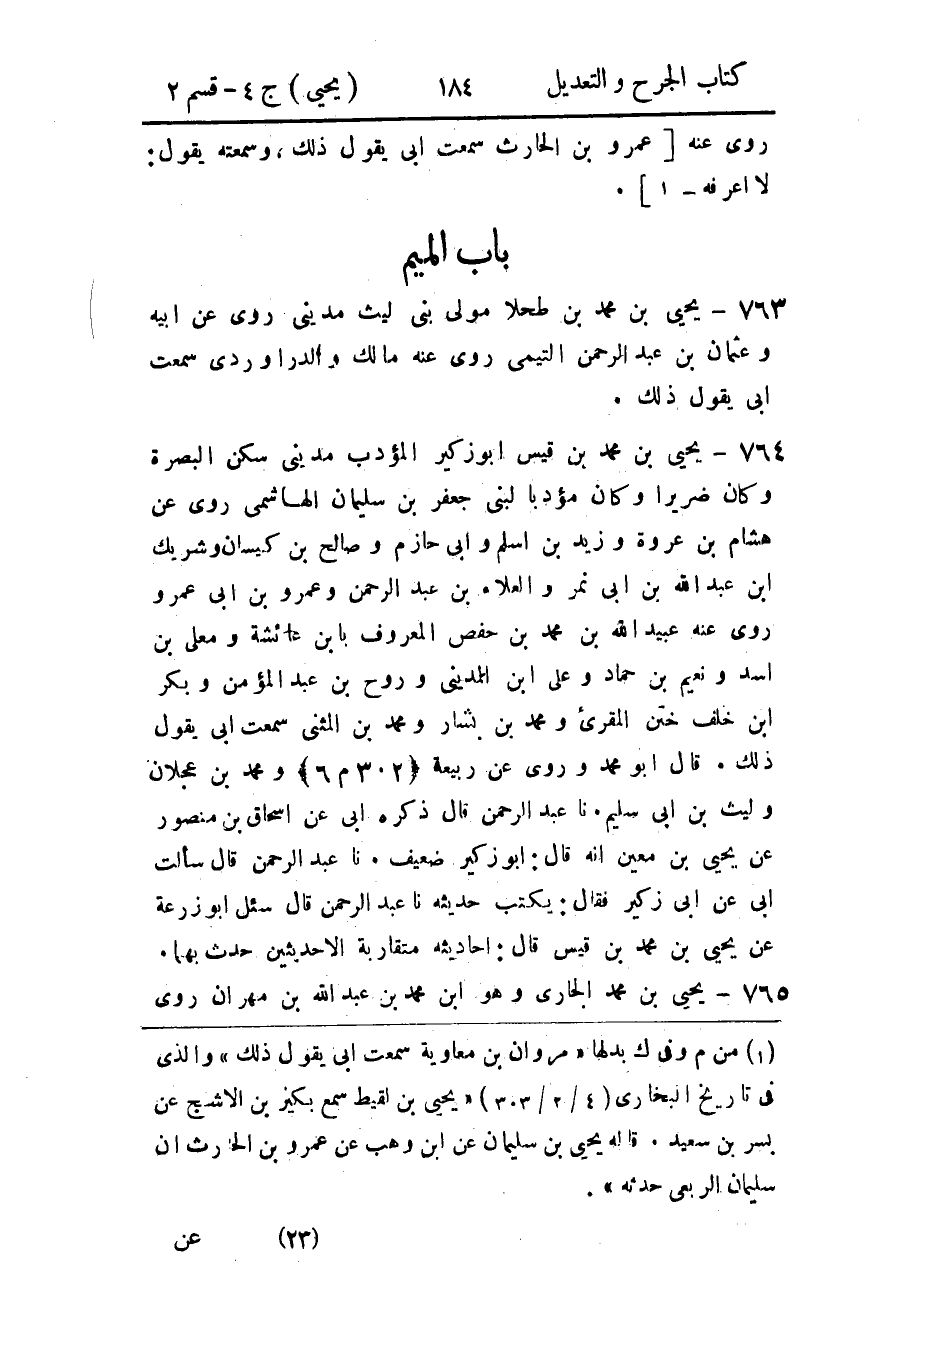 كتاب الجرح و التعديل ١٨٤ ( يحيى ) ج ٤ - قسم ٢
روى عنه [ عمرو بن الحارث سمعت ابى يقول ذلك ، وسمعته يقول :
لا اعرفه - ١ ] .
باب الميم
٧٦٣ - يحيى بن محمد بن طحلا مولى بنى ليث مدينى روى عن ابيه
و عثمان بن عبد الرحمن التيمى روى عنه مالك و الدراوردى سمعت
ابى يقول ذلك .
٧٦٤ - يحيى بن محمد بن قيس ابو زكير المؤدب مدينى سكن البصرة
وكان ضريرا وكان مؤدبا لبنى جعفر بن سليمان الهاشمى روى عن
هشام بن عروة و زيد بن اسلم و ابى حازم و صالح بن كيسان و شريك
ابن عبد الله بن ابى نمر و العلاء بن عبد الرحمن وعمرو بن ابى عمرو
روى عنه عبيد الله بن محمد بن حفص المعروف بابن عائشة و معلى بن
اسد و نعيم بن حماد و على ابن المدينى و روح بن عبد المؤمن و بكر
ابن خلف ختن المقرئ و محمد بن بشار و محمد بن المثنى سمعت ابى يقول
ذلك . قال ابو محمد و روى عن ربيعة ( ٣٠٢ م ٦ ) و محمد بن عجلان
و ليث بن ابى سليم . نا عبد الرحمن قال ذكره ابى عن اسحاق بن منصور
عن يحيى بن معين انه قال : ابو زكير ضعيف . نا عبد الرحمن قال سألت
ابى عن ابى زكير فقال : يكتب حديثه نا عبد الرحمن قال سئل ابو زرعة
عن يحيى بن محمد بن قيس قال : احاديثه متقاربة الا حديثين حدث بهما .
٧٦٥ - يحيى بن محمد الجارى و هو ابن محمد بن عبد الله بن مهران روى
(١) من م وفى ك بدلها « مروان بن معاوية سمعت ابى يقول ذلك » والذى
فى تاريخ البخارى ( ٤ / ٢ / ٣٠٣ ) « يحيى بن لقيط سمع بكير بن الاشج عن
بسر بن سعيد . قاله يحيى بن سليمان عن ابن وهب عن عمرو بن الحارث ان
سليمان الربعى حدثه » .
(٢٣) عن